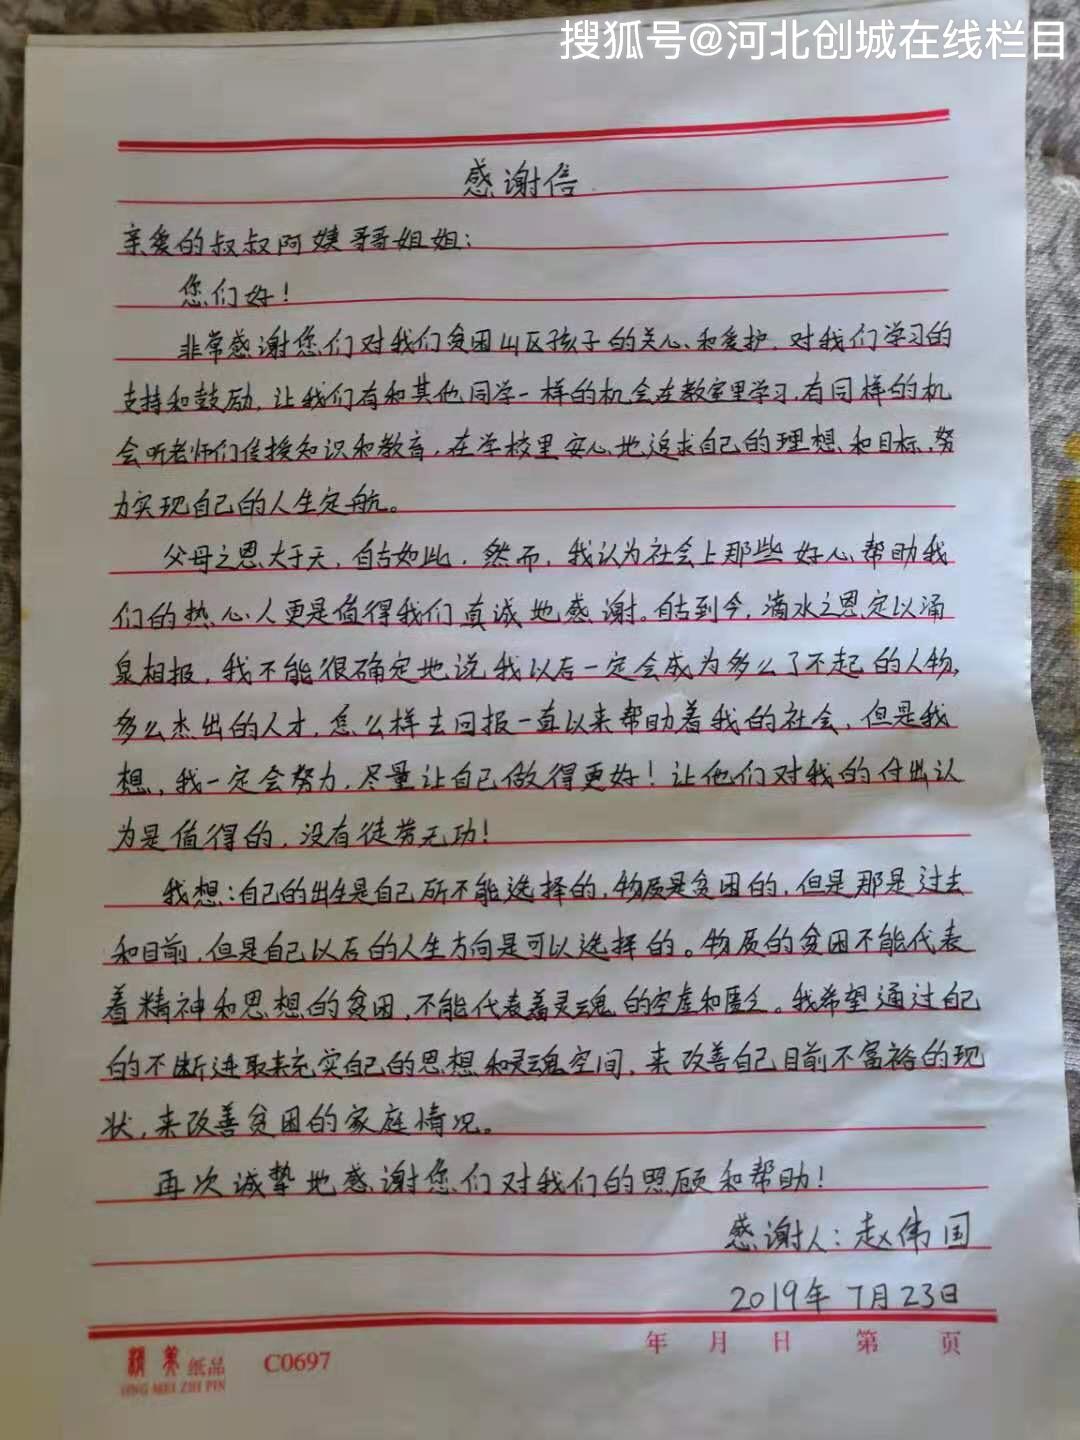 搜狐号@河北创城在线栏目
感谢信
亲爱的叔叔阿姨哥哥姐姐：
您们好！
非常感谢您们对我们贫困山区孩子的关心和爱护，对我们学习的
支持和鼓励，让我们有和其他同学一样的机会在教室里学习，有同样的机
会听老师们传授知识和教育，在学校里安心地追求自己的理想和目标，努
力实现自己的人生定航。
父母之恩大于天，自古如此，然而，我认为社会上那些好心帮助我
们的热心人更是值得我们真诚地感谢。自古到今，滴水之恩定以涌
泉相报，我不能很确定地说我以后一定会成为多么了不起的人物，
多么杰出的人才，怎么样去回报一直以来帮助着我的社会，但是我
想，我一定会努力，尽量让自己做得更好！让他们对我的付出认
为是值得的，没有徒劳无功！
我想：自己的出生是自己所不能选择的，物质是贫困的，但是那是过去
和目前，但是自己以后的人生方向是可以选择的。物质的贫困不能代表
着精神和思想的贫困，不能代表着灵魂的空虚和匮乏。我希望通过自己
的不断进取来充实自己的思想和灵魂空间，来改善自己目前不富裕的现
状，来改善贫困的家庭情况。
再次诚挚地感谢您们对我们的照顾和帮助！
感谢人：赵伟国
2019年7月23日
年 月 日 第 页
精美纸品 C0697
JING MEI ZHI PIN